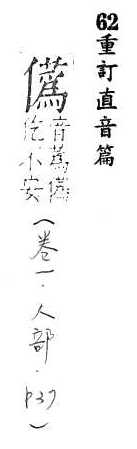 62重訂直音篇
儰
音蒍儰
仡不安
(卷一·人部·p37)